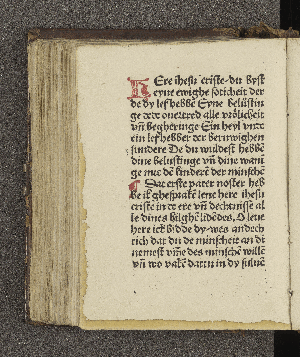 HEre ihesu criste. du byst
eyne ewighe soticheit der
de dy lef hebbē Eyne belustin
ge
alle vrolicheit
vñ begheringe Ein heyl
ein lef hebber der
sundere De du wildest hebbē
dine belustinge vñ dine wani
ge
den kinderē der minschē
Dat erste pater noster heb
be ik ghesprakē leue here ihesu
criste in
ere vñ dechtnisse al
le dines bilghē lidēdes, O leue
here ick bidde dy
andech
tich dat du de minscheit an di
nemest
des minschē willē
vñ wo vakē
in dy suluē